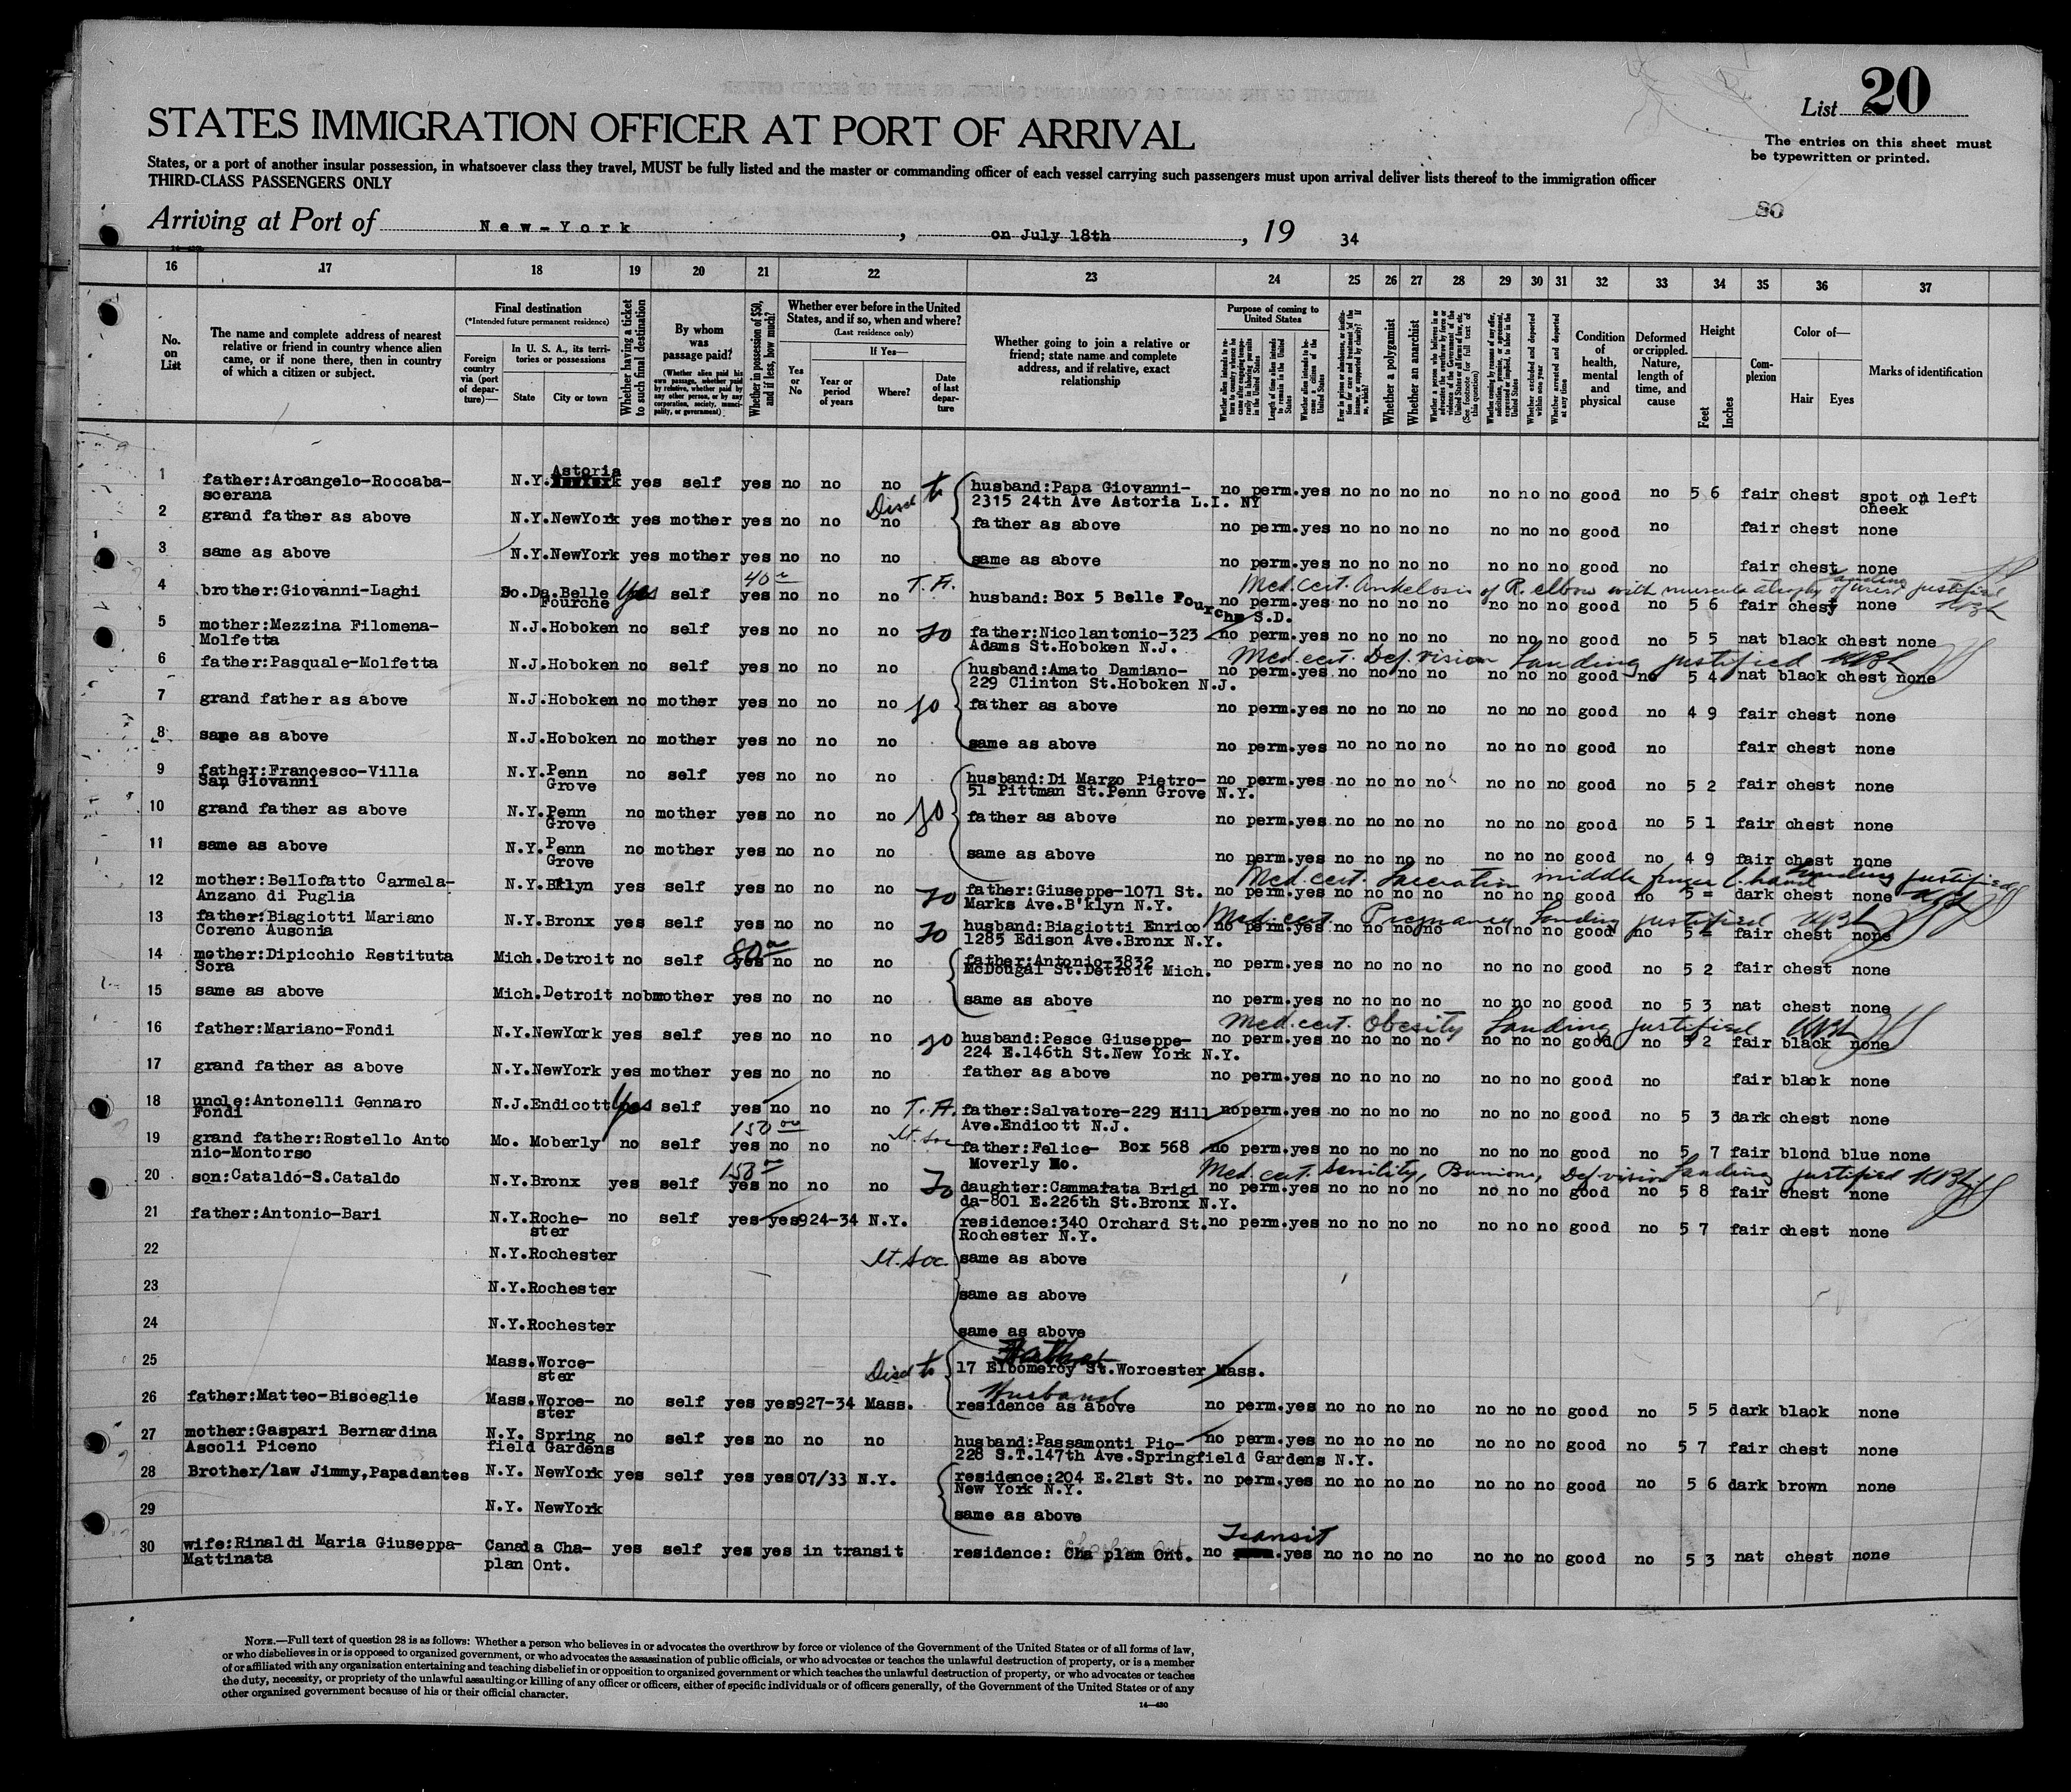 List 20
STATES IMMIGRATION OFFICER AT PORT OF ARRIVAL
The entries on this sheet must
be typewritten or printed.
States, or a port of another insular possession, in whatsoever class they travel, MUST be fully listed and the master or commanding officer of each vessel carrying such passengers must upon arrival deliver lists thereof to the immigration officer
THIRD-CLASS PASSENGERS ONLY
80
Arriving at Port of New-York, on July 18th, 19 34
16 17 18 19 20 21 22 23 24 25 26 27 28 29 30 31 32 33 34 35 36 37
No. on List
The name and complete address of nearest relative or friend in country whence alien came, or if none there, then in country of which a citizen or subject.
Final destination
(*Intended future permanent residence)
Foreign country via (port of departure)—
In U. S. A., its territories or possessions
State City or town
Whether having a ticket to such final destination
By whom was passage paid?
(Whether alien paid his own passage, whether paid by relative, whether paid by any other person, or by any corporation, society, municipality, or government)
Whether in possession of $50, and if less, how much?
Whether ever before in the United States, and if so, when and where?
(Last residence only)
Yes or No
If Yes—
Year or period of years
Where?
Date of last departure
Whether going to join a relative or friend; state name and complete address, and if relative, exact relationship
Purpose of coming to United States
Length of time alien intends to remain in the United States
Whether alien intends to become a citizen of the United States
Whether a polygamist
Whether an anarchist
(See footnote for full text of this question)
Whether excluded and deported within one year
Whether arrested and deported at any time
Condition of health, mental and physical
Deformed or crippled. Nature, length of time, and cause
Height
Feet Inches
Complexion
Color of—
Hair Eyes
Marks of identification
1 father:Arcangelo-Roccaba- N.Y. Astoria yes self yes no no no husband:Papa Giovanni- no perm.yes no no no no no no no good no 5 6 fair chest spot on left
scerana 2315 24th Ave Astoria L.I. NY cheek
Disd to
2 grand father as above N.Y.NewYork yes mother yes no no no father as above no perm.yes no no no no no no no good no fair chest none
3 same as above N.Y.NewYork yes mother yes no no no same as above no perm.yes no no no no no no no good no fair chest none
40 T.A. Med. cert. Ankelosis of R. elbow with muscular atrophy of Landing justified
4 brother:Giovanni-Laghi So.Da.Belle Yes self yes no no no husband: Box 5 Belle Fourche S.D. no perm.yes no no no no no no no good no 5 6 fair chest none
Fourche
5 mother:Mezzina Filomena- N.J.Hoboken no self yes no no no father:Nicolantonio-323 no perm.yes no no no no no no no good no 5 5 nat black chest none
Molfetta Adams St.Hoboken N.J.
Med. cert. Def. vision Landing justified
6 father:Pasquale-Molfetta N.J.Hoboken no self yes no no no husband:Amato Damiano- no perm.yes no no no no no no no good no 5 4 nat black chest none
229 Clinton St.Hoboken N.J.
7 grand father as above N.J.Hoboken no mother yes no no no father as above no perm.yes no no no no no no no good no 4 9 fair chest none
8 same as above N.J.Hoboken no mother yes no no no same as above no perm.yes no no no no no no no good no fair chest none
9 father:Francesco-Villa N.Y.Penn no self yes no no no husband:Di Marzo Pietro- no perm.yes no no no no no no no good no 5 2 fair chest none
San Giovanni Grove 51 Pittman St.Penn Grove N.Y.
10 grand father as above N.Y.Penn no mother yes no no no father as above no perm.yes no no no no no no no good no 5 1 fair chest none
Grove
11 same as above N.Y.Penn no mother yes no no no same as above no perm.yes no no no no no no no good no 4 9 fair chest none
Grove
Med. cert. Laceration middle finger L. hand Landing justified
12 mother:Bellofatto Carmela- N.Y.Bklyn yes self yes no no no father:Giuseppe-1071 St. no perm.yes no no no no no no no good no 5 = dark chest none
Anzano di Puglia Marks Ave.B'klyn N.Y.
Med. cert. Pregnancy Landing justified
13 father:Biagiotti Mariano N.Y.Bronx yes self yes no no no husband:Biagiotti Enrico no perm.yes no no no no no no no good no 5 = fair chest none
Coreno Ausonia 1285 Edison Ave.Bronx N.Y.
80
14 mother:Dipicchio Restituta Mich.Detroit no self yes no no no father:Antonio-3832 no perm.yes no no no no no no no good no 5 2 fair chest none
Sora McDougal St.Detroit Mich.
15 same as above Mich.Detroit no mother yes no no no same as above no perm.yes no no no no no no no good no 5 3 nat chest none
Med. cert. Obesity Landing justified
16 father:Mariano-Fondi N.Y.NewYork yes self yes no no no husband:Pesce Giuseppe- no perm.yes no no no no no no no good no 5 2 fair black none
224 E.146th St.New York N.Y.
17 grand father as above N.Y.NewYork yes mother yes no no no father as above no perm.yes no no no no no no no good no fair black none
18 uncle:Antonelli Gennaro N.J.Endicott Yes self yes no no no T.A. father:Salvatore-229 Hill no perm.yes no no no no no no no good no 5 3 dark chest none
Fondi Ave.Endicott N.J.
150 00 It. Soc
19 grand father:Rostello Anto Mo. Moberly no self yes no no no father:Felice- Box 568 no perm.yes no no no no no no no good no 5 7 fair blond blue none
nio-Montorso Moverly Mo.
158 Med. cert. Senility, Bunions, Def. vision Landing justified
20 son:Cataldo-S.Cataldo N.Y.Bronx yes self yes no no no daughter:Cammarata Brigi no perm.yes no no no no no no no good no 5 8 fair chest none
da-801 E.226th St.Bronx N.Y.
21 father:Antonio-Bari N.Y.Roche- no self yes yes924-34 N.Y. residence:340 Orchard St. no perm.yes no no no no no no no good no 5 7 fair chest none
ster Rochester N.Y.
22 N.Y.Rochester It. Soc. same as above
23 N.Y.Rochester same as above
24 N.Y.Rochester same as above
Father
25 Mass.Worce- Disd to 17 Elbomeroy St.Worcester Mass.
ster Husband
26 father:Matteo-Bisceglie Mass.Worce- no self yes yes927-34 Mass. residence as above no perm.yes no no no no no no no good no 5 5 dark black none
ster
27 mother:Gaspari Bernardina N.Y. Spring no self yes no no no husband:Passamonti Pio- no perm.yes no no no no no no no good no 5 7 fair chest none
Ascoli Piceno field Gardens 228 S.T.147th Ave.Springfield Gardens N.Y.
28 Brother/law Jimmy,Papadantes N.Y. NewYork yes self yes yes07/33 N.Y. residence:204 E.21st St. no perm.yes no no no no no no no good no 5 6 dark brown none
New York N.Y.
29 N.Y. NewYork same as above
Transit
30 wife:Rinaldi Maria Giuseppa- Canada Cha- yes self yes yes in transit residence: Cha plam Ont. no yes no no no no no no no good no 5 3 nat chest none
Mattinata plan Ont.
NOTE.—Full text of question 28 is as follows: Whether a person who believes in or advocates the overthrow by force or violence of the Government of the United States or of all forms of law,
or who disbelieves in or is opposed to organized government, or who advocates the assassination of public officials, or who advocates or teaches the unlawful destruction of property, or is a member
of or affiliated with any organization entertaining and teaching disbelief in or opposition to organized government or which teaches the unlawful destruction of property, or who advocates or teaches
the duty, necessity, or propriety of the unlawful assaulting or killing of any officer or officers, either of specific individuals or of officers generally, of the Government of the United States or of any
other organized government because of his or their official character.
14—430